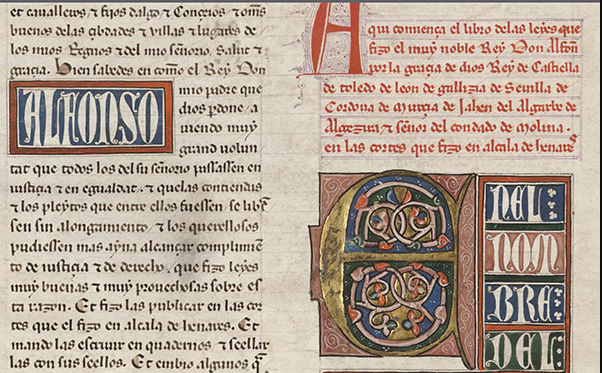 et cauallews ⁊ fijos dalgo ⁊ Conçeios ⁊ om̃s
buenos delas çibdades ⁊ villas ⁊ lugares de
los mios Regnos ⁊ del mio señorio. Salut ⁊
graçia. Bien sabedes en com̃o el Rey Don
ALFONSO
mio padre que
dios p̱done. a
uiendo muy
grand uolun
tat que todos los del su señorio passassen en
iustiçia ⁊ en egualdat. ⁊ quelas contiendas
⁊ los pleytos que entre ellos fuessen. se lib̃s
sen sin alongamiento. ⁊ los querellosos
pudiessen mas ayna alcançar complimiẽ
to de iustiçia ⁊ de derecho. que fizo leyes
muy buenas ⁊ muy prouechosas sobre es
ta razon. Et fizo las publicar en las cor
tes que el fizo en alcala de henares. Et
mando las escriuir en quadernos ⁊ seellar
las con sus seellos. Et enbio algunos q̃
Aqui comiença el libro delas leyes que
fizo el muy noble Rey Don Alfõn
por la graçia de dios Rey de Castiella
de toledo de leon de gallizia de Seuilla de
Cordoua de Murçia de Jahen del Algarbe de
Algezira ⁊ señor del condado de molina.
en las cortes que fizo en alcala de henares
E
NEL
NOM
BRE
DEL